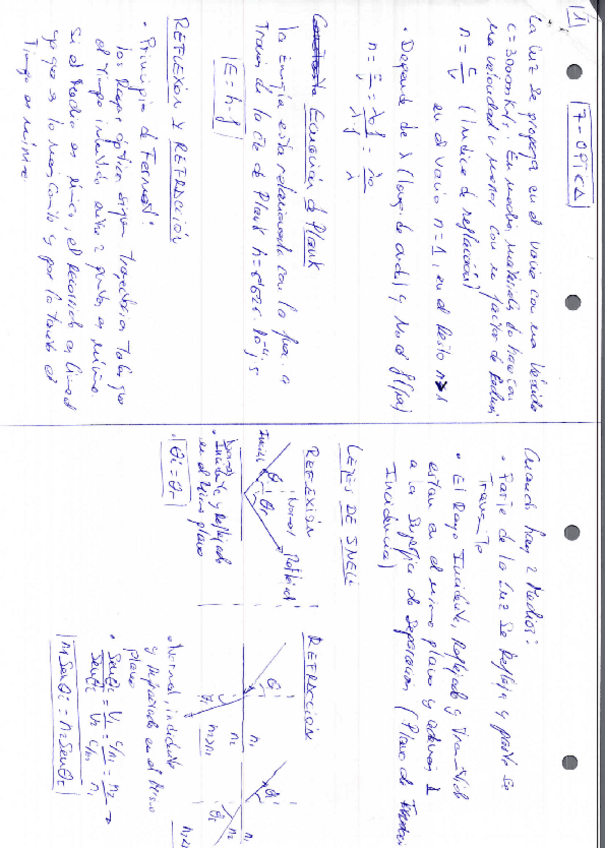 1
7-OPTICA
La luz se propaga en el vacío con una velocidad
c=300000 km/s. En medios materiales lo hace con
una velocidad menor con un factor de
n = c/v (Indice de refracción)
en el vacío n=1, en el resto n>1
• Depende de λ (long. de onda) y no de f (frec)
n = c/v = λ0·f/λ·f = λ0/λ
Ecuación de Plank
La energía esta relacionada con la frec. a
Traves de la cte de Plank h=6'626·10⁻³⁴ J·s
E=h·f
REFLEXIÓN Y REFRACCIÓN
• Principio de Fermat:
los Rayos ópticos siguen trayectorias tales que
el Tiempo invertido entre 2 puntos es mínimo
Si el Medio es único, el recorrido es lineal
ya que es lo mas corto y por lo tanto el
Tiempo es mínimo
Cuando hay 2 Medios:
• Parte de la Luz se Refleja y parte se
Transmite
• El Rayo Incidente, Reflejado y Transmitido
estan en el mismo plano y además ⊥
a la Superficie de Separación (Plano de
Incidencia)
LEYES DE SNELL
REFLEXIÓN
Incid.
Normal
Reflejado
θi
θr
• Incidente y Reflejado
en el mismo plano
• θi=θr
REFRACCIÓN
θi
n1
n2
n2>n1
θi
n1
n2
• Normal, incidente
y Refractado en el Mismo
plano
• Senθi/Senθt = V1/V2 = C/n1/C/n2 = n2/n1 →
n1Senθi=n2Senθt